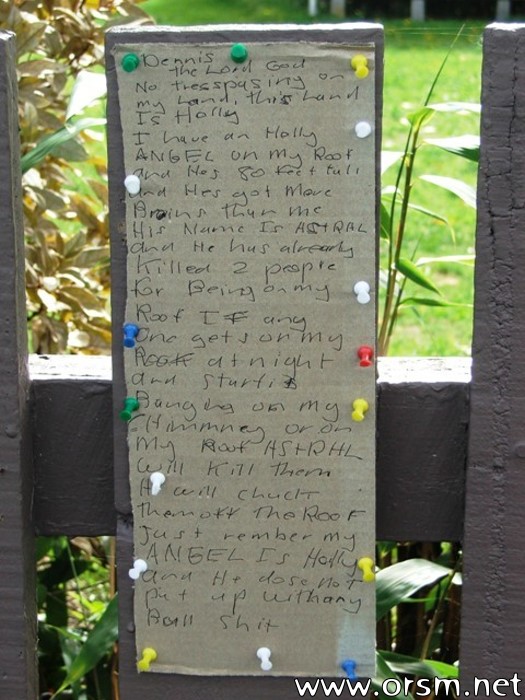 Dennis
the Lord God
No tresspasing on
my Land, this Land
Is Holly
I have an Holly
ANGEL on my Roof
and Hes 80 Feet tall
and Hes got More
Brains than me
His Name Is AStRAL
and He has already
Killed 2 people
for Being on my
Roof IF any
One gets on my
Roof at night
and Starts
Banging on my
Chimmney or on
My Roof AStRAL
will Kill them
He will chuck
them off The RooF
Just rember my
ANGEL Is Holly
and He dose not
put up with any
Bull Shit
www.orsm.net